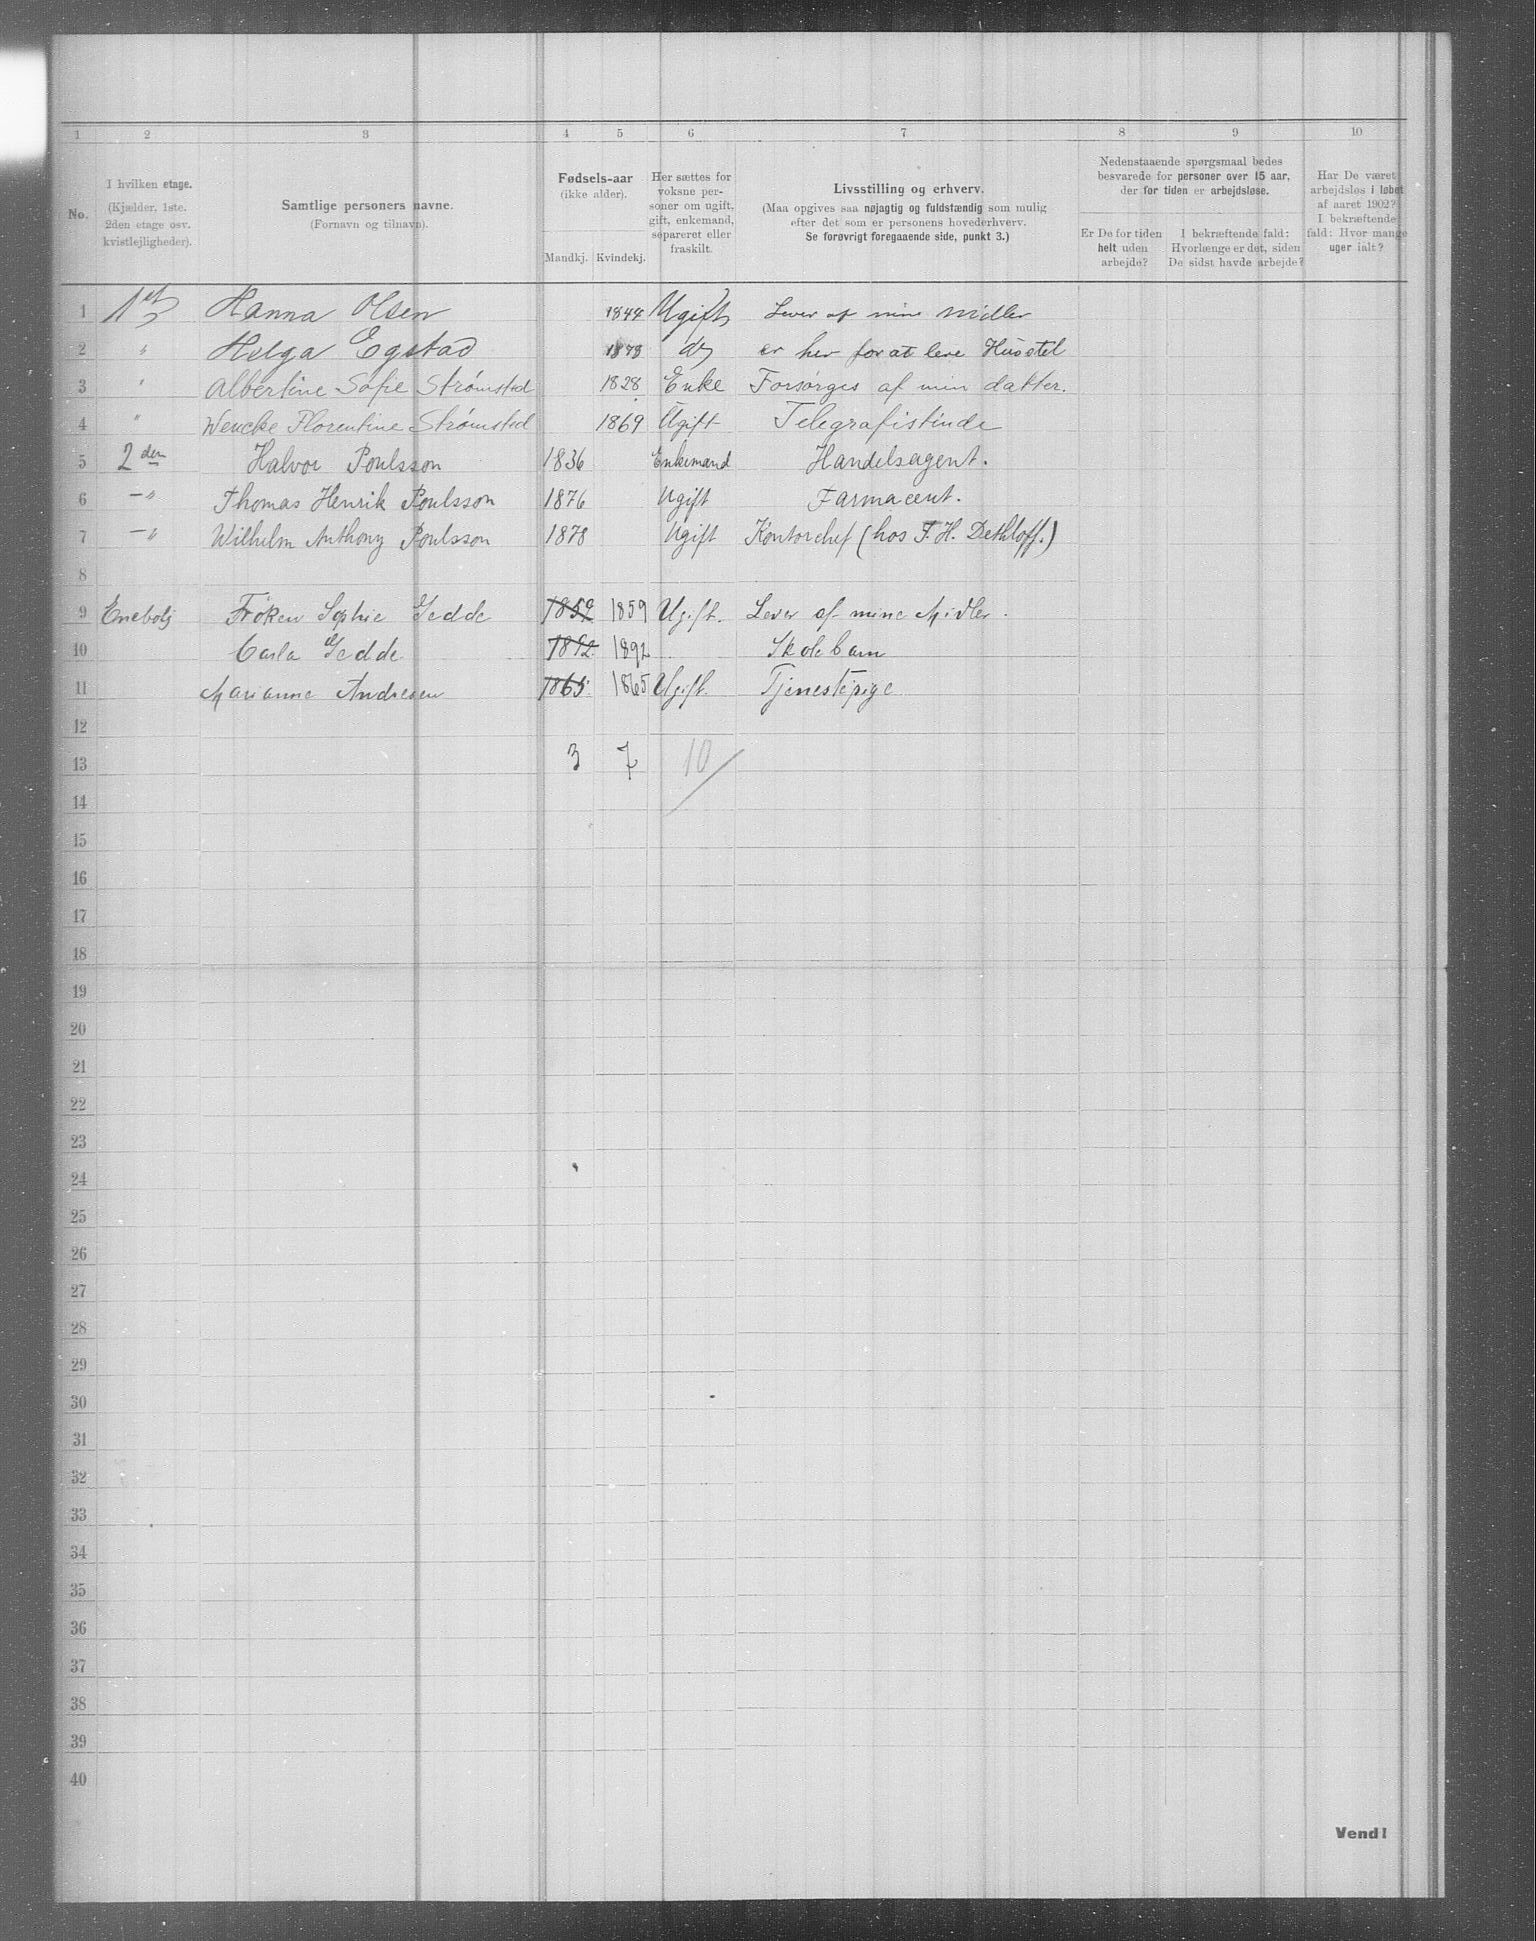 1 2 3 4 5 6 7 8 9 10
No.
I hvilken etage.
(Kjælder, 1ste.
2den etage osv.
kvistlejligheder).
Samtlige personers navne.
(Fornavn og tilnavn).
Fødsels-aar
(ikke alder).
Mandkj. Kvindekj.
Her sættes for
voksne per-
soner om ugift,
gift, enkemand,
separeret eller
fraskilt.
Livsstilling og erhverv.
(Maa opgives saa nøjagtig og fuldstændig som mulig
efter det som er personens hovederhverv.
Se forøvrigt foregaaende side, punkt 3.)
Nedenstaaende spørgsmaal bedes
besvarede for personer over 15 aar,
der for tiden er arbejdsløse.
Er De for tiden
helt uden
arbejde?
I bekræftende fald:
Hvorlænge er det, siden
De sidst havde arbejde?
Har De været
arbejdsløs i løbet
af aaret 1902?
I bekræftende
fald: Hvor mange
uger ialt?
1 1et Hanna Olsen 1844 Ugift Lever af mine midler
2 " Helga Egstad 1873 do er her for at lere Husstel
3 " Albertine Sofie Strømsted 1828 Enke Forsørges af min datter.
4 " Wencke Florentine Strømsted 1869 Ugift Telegrafistinde
5 2den Halvor Poulsson 1836 Enkemand Handelsagent.
6 —"— Thomas Henrik Poulsson 1876 Ugift Farmaceut.
7 —"— Wilhelm Anthony Poulsson 1878 Ugift Kontorchef (hos F. H. Dethloff.)
8
9 Enebolj Frøken Sophie Gedde 1859 1859 Ugift. Lever af mine Midler.
10 Carla Gedde 1892 1892 Skolebarn
11 Marianne Andresen 1865 1865 Ugift. Tjenestepige
12
13 3 7 10
14
15
16
17
18
19
20
21
22
23
24
25
26
27
28
29
30
31
32
33
34
35
36
37
38
39
40
Vend!